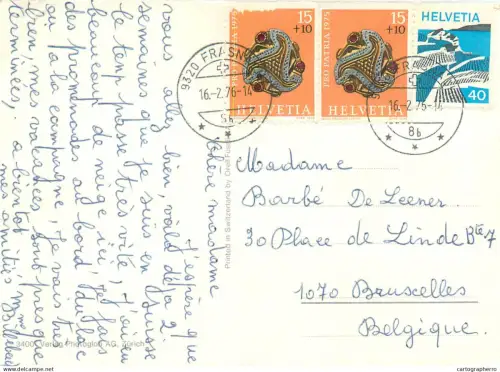 Chère madame
j'espère que
vous allez bien, voilà déjà 2
semaines que je suis en Suisse
le temps passe très vite, j'ai eu
beaucoup de neige ici, je fais
des promenades au bord du lac
ou a la campagne, je vais très
bien, mes vacances sont presque
terminées, a bientot
mes amitiés Mme Billebay
15
+10
PRO PATRIA 1975
HELVETIA
15
+10
PRO PATRIA 1975
HELVETIA
HELVETIA
40
9320 FRASN
16.-2.76-14
9320 FRA
16.-2.76-14
8b
Madame
Barbé De Leener.
30 Place de Linde Bte 7
1070 Bruxelles
Belgique.
Printed in Switzerland by
3400 Verlag Photoglob AG, Zürich
cartographerro © www.delcampe.net